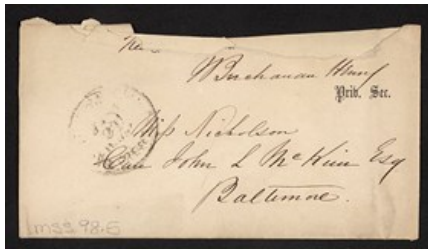 Buchanan Henry
Priv. Sec.
Miss Nicholson
Care John L McKim Esq
Baltimore.
mss 98.5